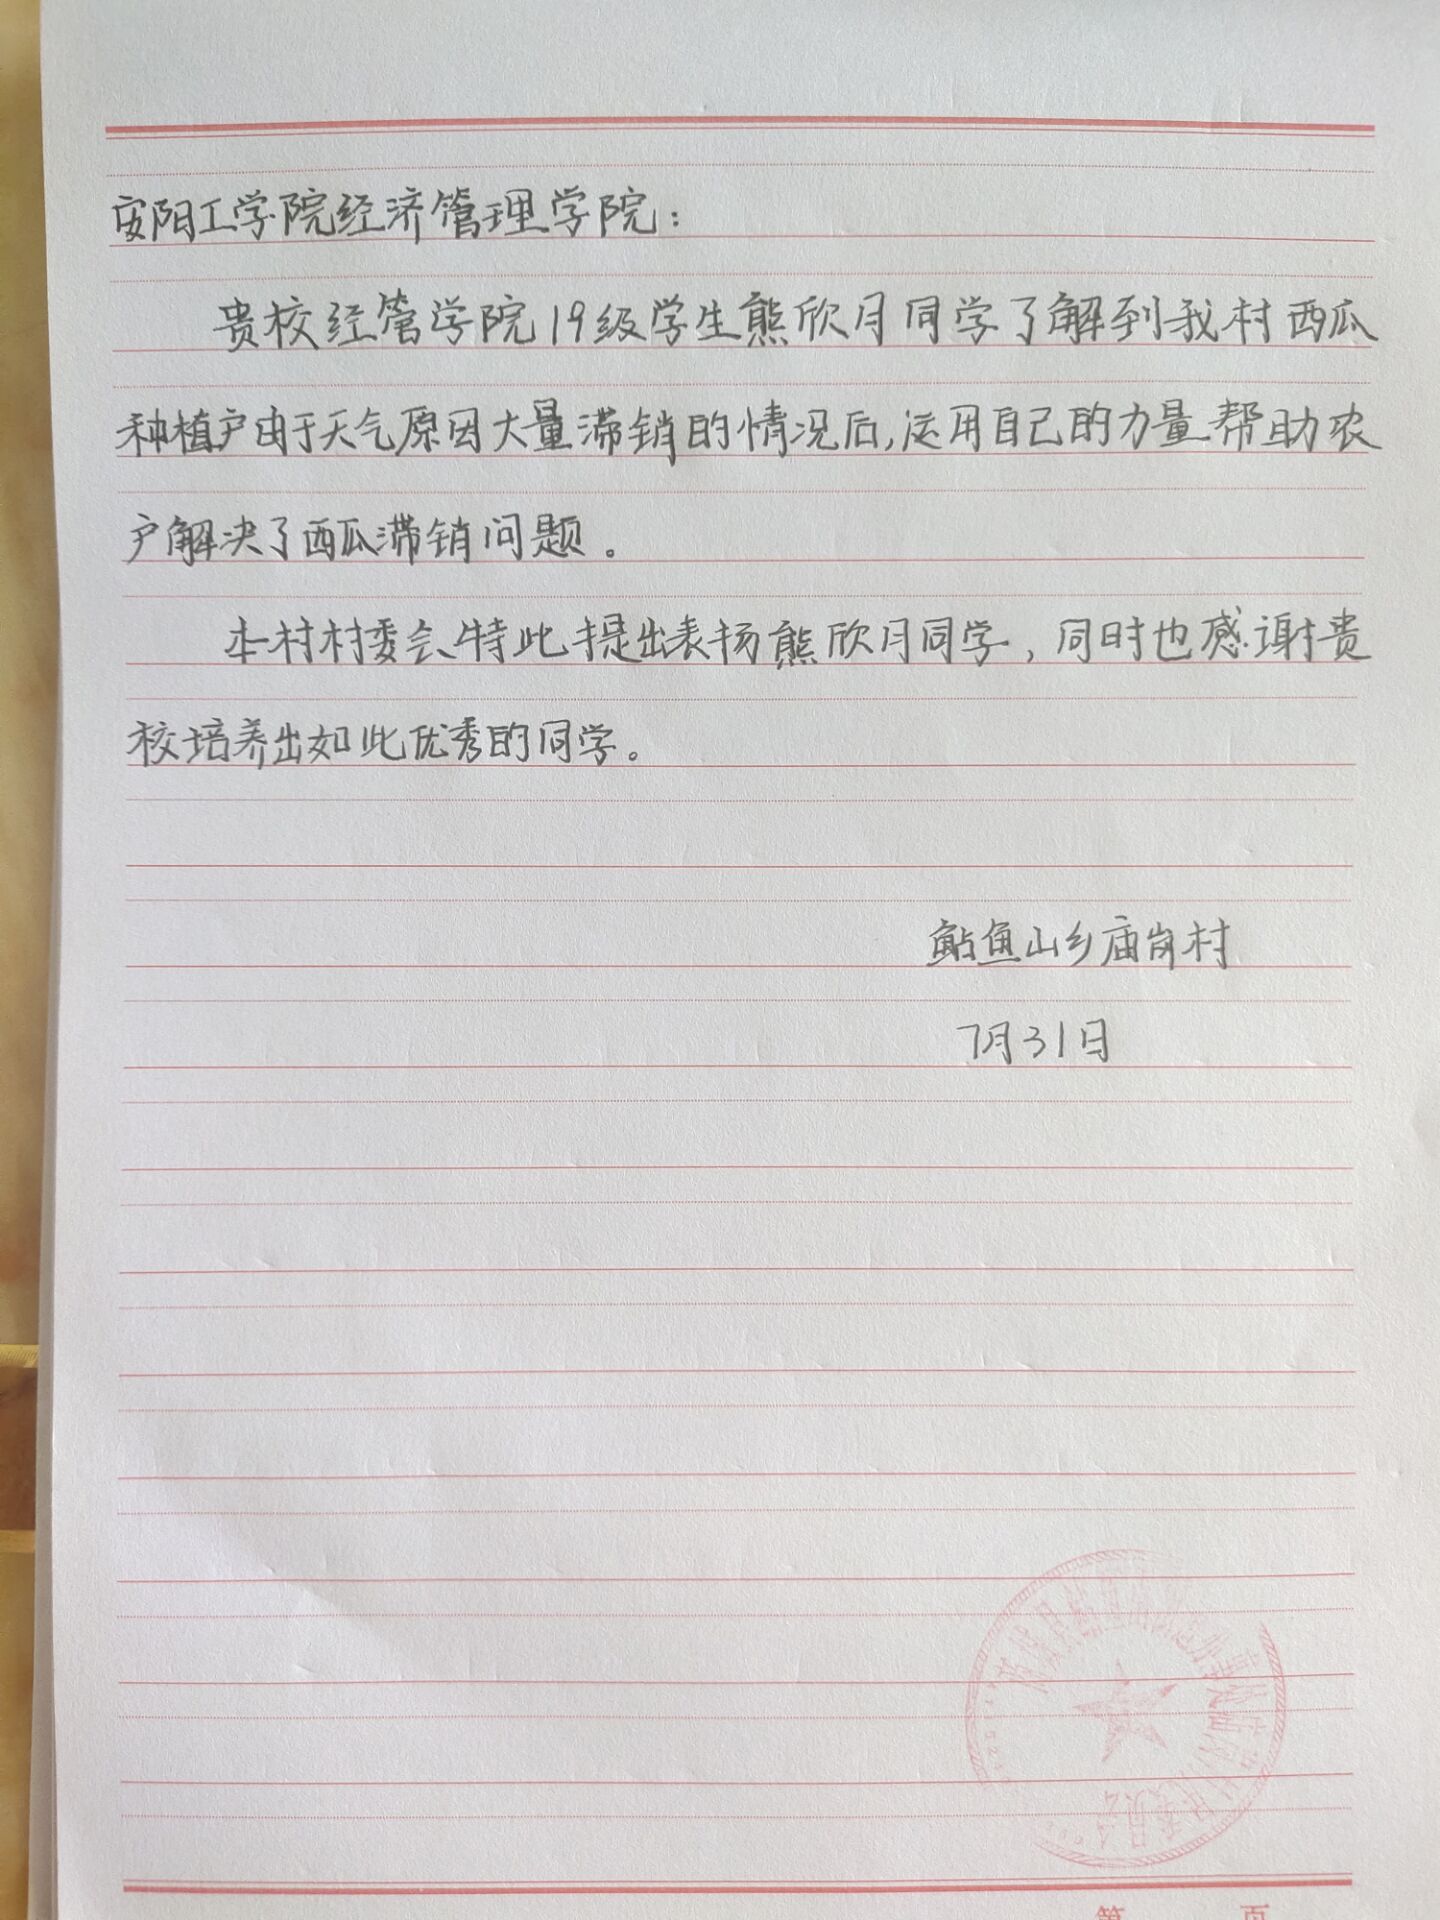 安阳工学院经济管理学院：
贵校经管学院19级学生熊欣月同学了解到我村西瓜
种植户由于天气原因大量滞销的情况后,运用自己的力量帮助农
户解决了西瓜滞销问题。
本村村委会特此提出表扬熊欣月同学,同时也感谢贵
校培养出如此优秀的同学。
鲇鱼山乡庙岗村
7月31日
第 页